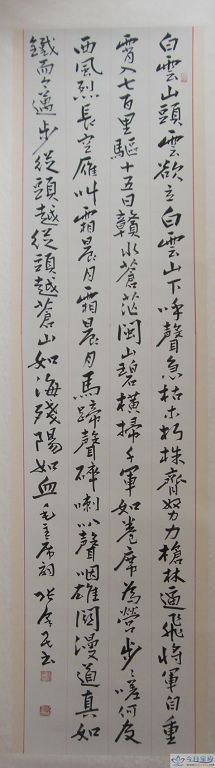 白雲山頭雲欲立白雲山下呼聲急枯木朽株齊努力槍林逼飛將軍自重
霄入七百里驅十五日贛水蒼茫閩山碧橫掃千軍如卷席為營步々嗟何及
西風烈長空雁叫霜晨月霜晨月馬蹄聲碎喇叭聲咽雄關漫道真如
鐵而今邁步從頭越從頭越蒼山如海殘陽如血毛主席詞